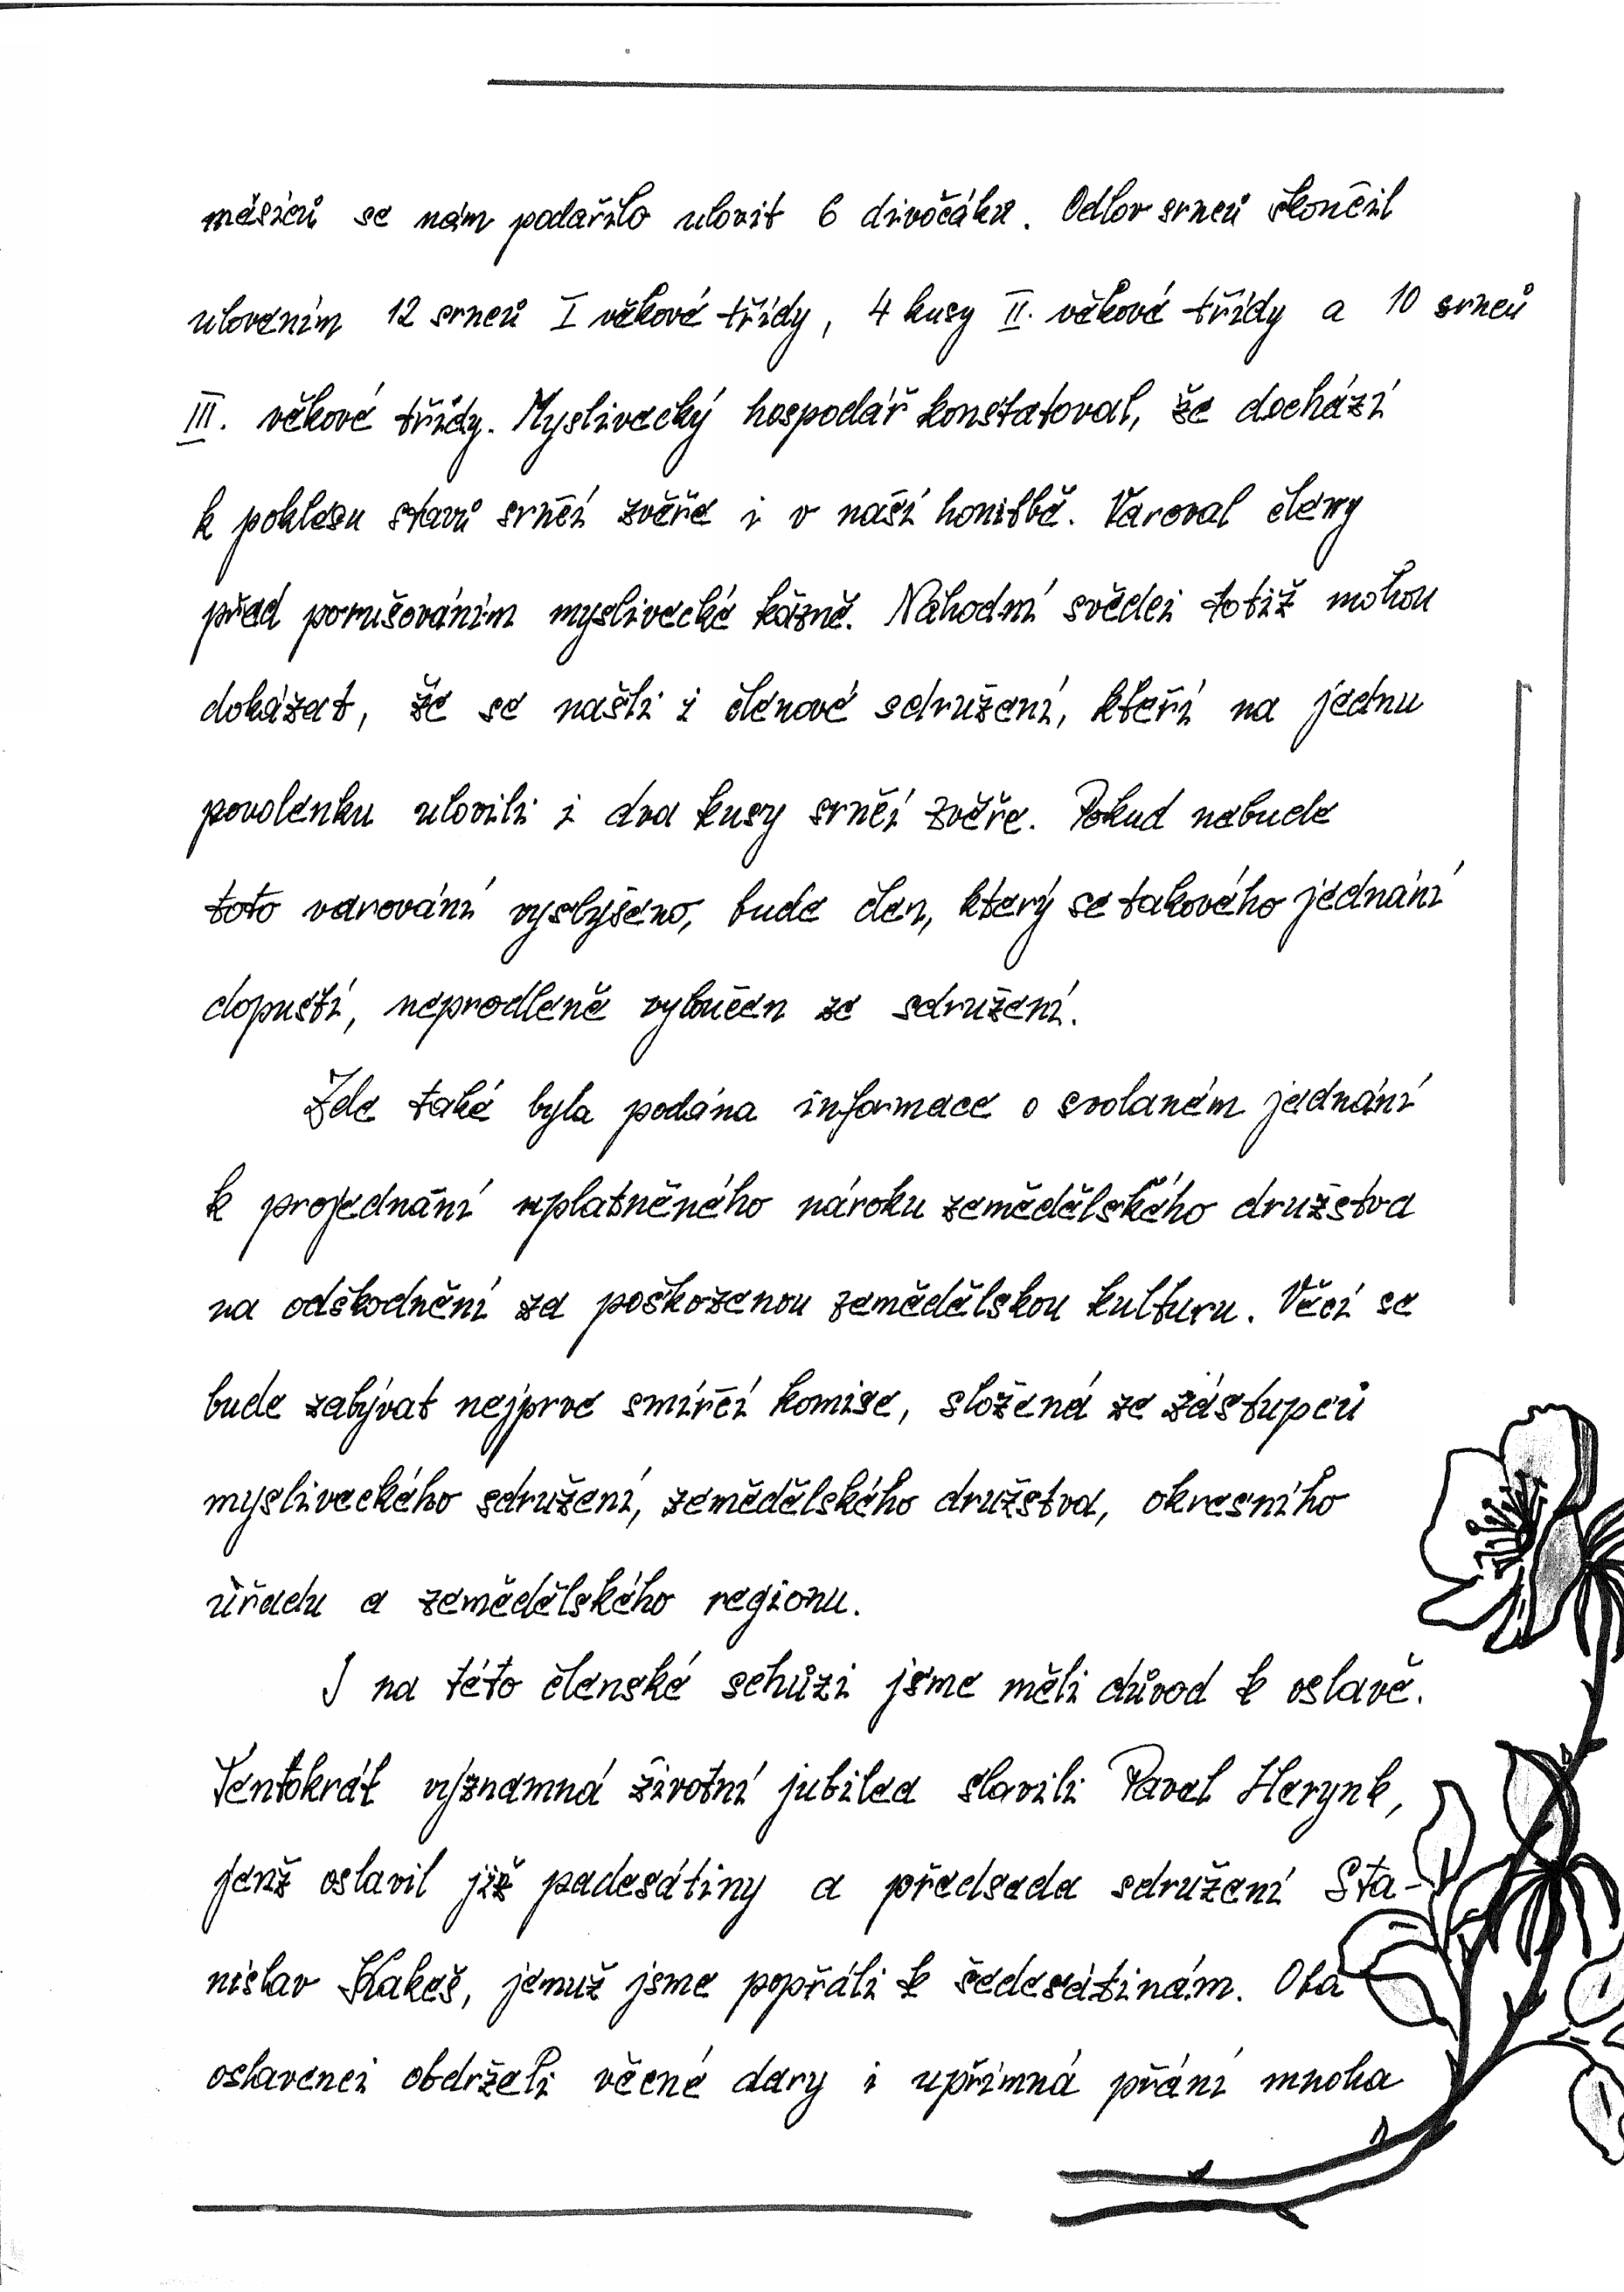 měsíců se nám podařilo ulovit 6 divočáku. Odlov srnců skončil
ulovením 12 srnců I věkové třídy, 4 kusy II. věkové třídy a 10 srnců
III. věkové třídy. Myslivecký hospodář konstatoval, že dochází
k poklesu stavů srnčí zvěře i v naší honitbě. Varoval členy
před porušováním myslivecké kázně. Náhodní svědci totiž mohou
dokázat, že se našli i členové sdružení, kteří na jednu
povolenku ulovili i dva kusy srnčí zvěře. Pokud nebude
toto varování vyslyšeno, bude člen, který se takového jednání
dopustí, neprodleně vyloučen ze sdružení.
Zde také byla podána informace o svolaném jednání
k projednání uplatněného nároku zemědělského družstva
na odškodnění za poškozenou zemědělskou kulturu. Věcí se
bude zabývat nejprve smírčí komise, složená ze zástupců
mysliveckého sdružení, zemědělského družstva, okresního
úřadu a zemědělského regionu.
I na této členské schůzi jsme měli důvod k oslavě.
Tentokrát významná životní jubilea slavili Pavel Herynk,
jenž oslavil již padesátiny a předseda sdružení Sta-
nislav Kakeš, jemuž jsme popřáli k šedesátinám. Oba
oslavenci obdrželi věcné dary i upřímná přání mnoha